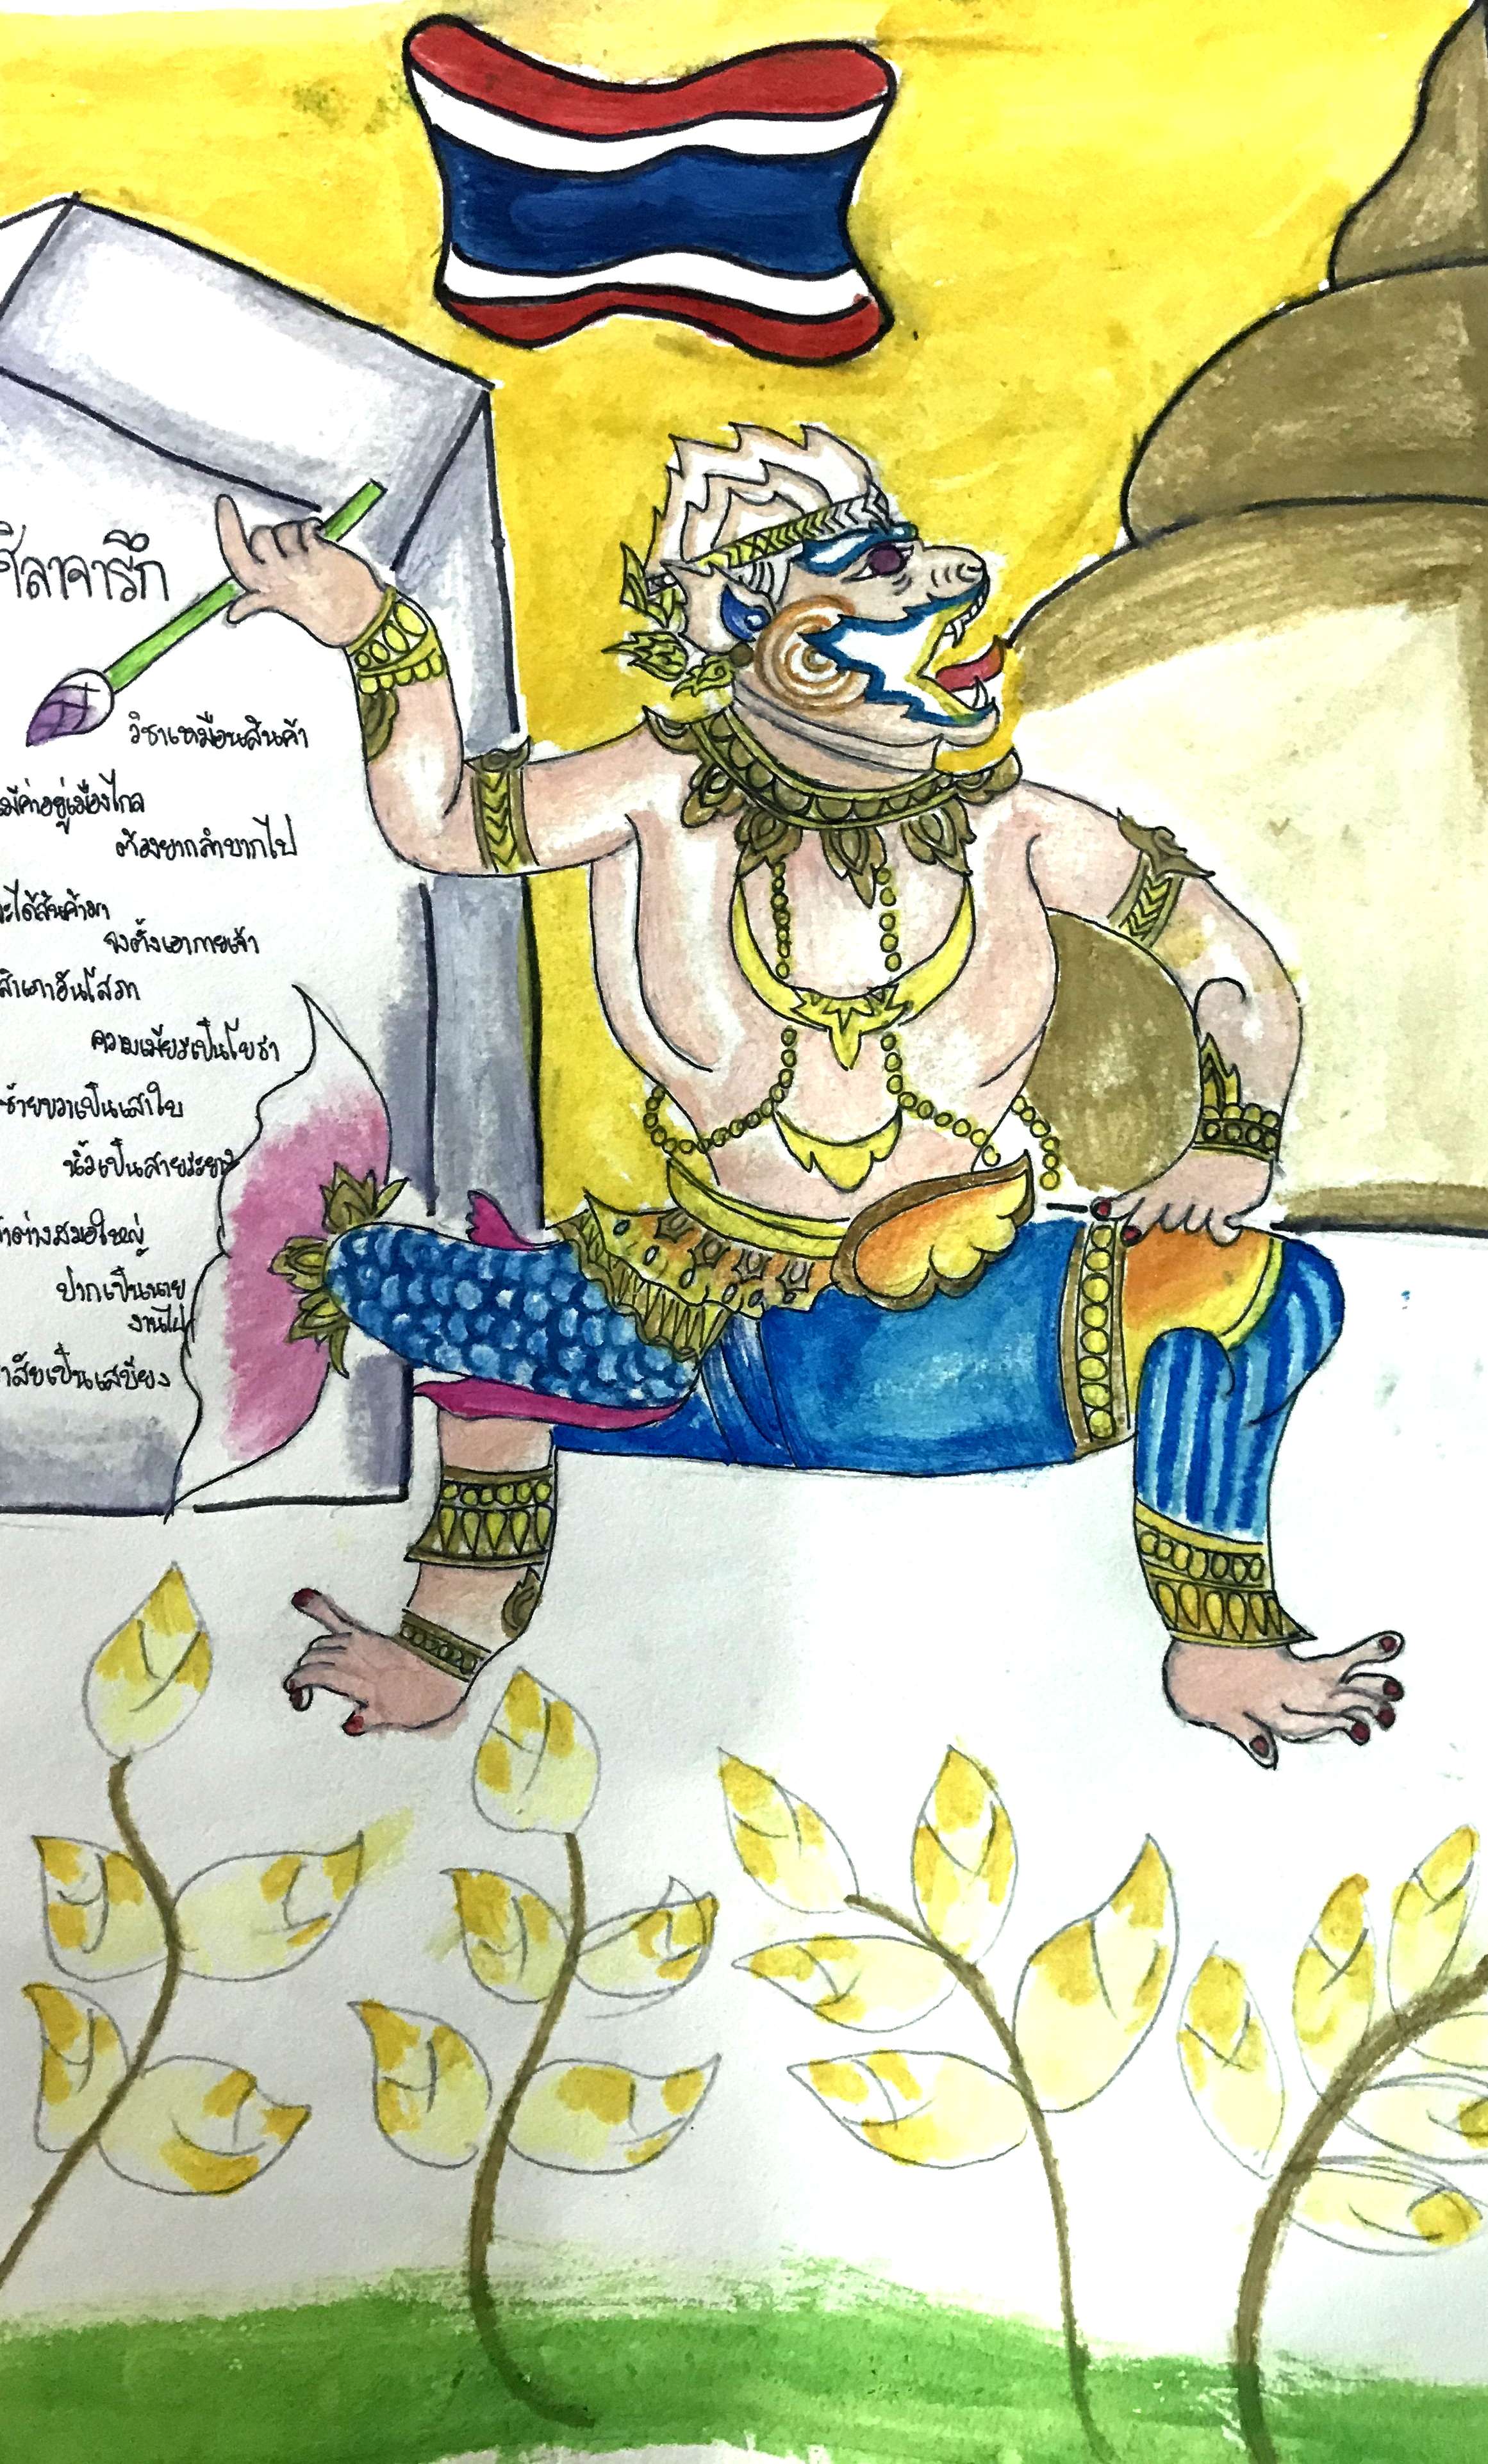 ศิลาจารึก
วิชาเหมือนสินค้า
มีค่าอยู่เมืองไกล
ต้องยากลำบากไป
จะได้สินค้ามา
จงตั้งเอากายเจ้า
สำเภาอันโสภา
ความเพียรเป็นโยธา
ซ้ายขวาเป็นเสาใบ
นิ้วเป็นสายระยาง
ต่างสมอใหญ่
ปากเป็นนาย
งานไป
เป็นเสบียง